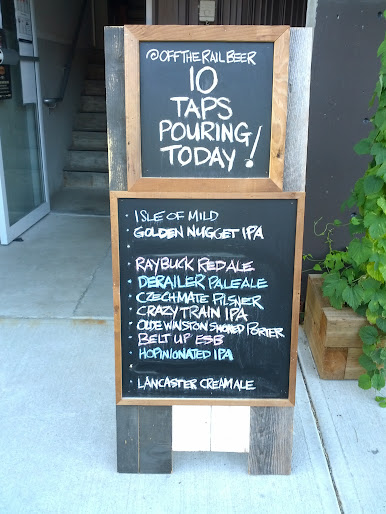 @OFFTHERAILBEER
10
TAPS
POURING
TODAY!
- ISLE OF MILD
- GOLDEN NUGGET IPA
- RAYBUCK RED ALE
- DERAILER PALE ALE
- CZECHMATE PILSNER
- CRAZY TRAIN IPA
- OLDE WINSTON SMOKED PORTER
- BELT UP ESB
- HOPINIONATED IPA
- LANCASTER CREAM ALE